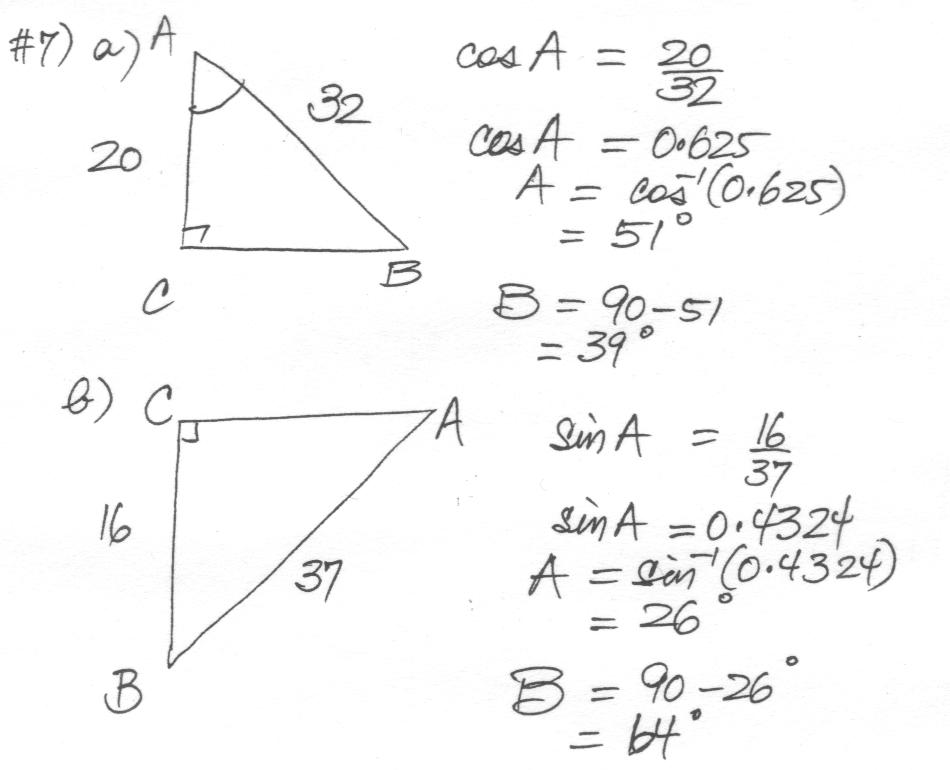 #7) a) A
32
20
C
B
cos A = 20/32
cos A = 0.625
A = cos⁻¹(0.625)
= 51°
B = 90 - 51
= 39°
b) C
A
16
37
B
sin A = 16/37
sin A = 0.4324
A = sin⁻¹(0.4324)
= 26°
B = 90 - 26°
= 64°